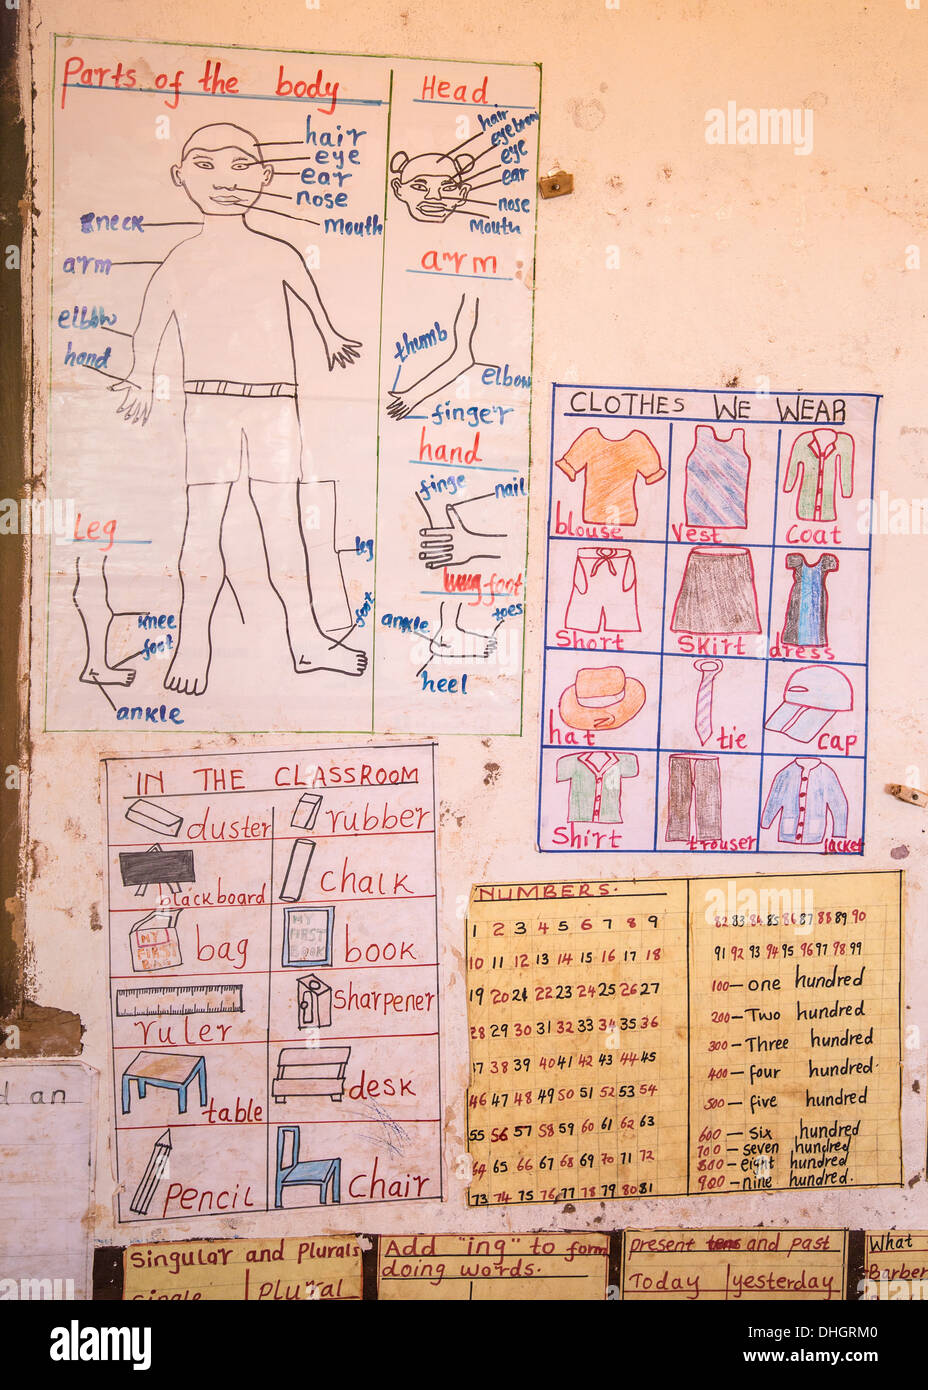 Parts of the body
hair
eye
ear
nose
mouth
neck
arm
elbow
hand
leg
foot
Leg
knee
foot
ankle
Head
hair
eyebrow
eye
ear
nose
mouth
arm
thumb
elbow
finger
hand
finge
nail
foot
ankle
toes
heel
CLOTHES WE WEAR
blouse
Vest
Coat
Short
Skirt
dress
hat
tie
cap
Shirt
trouser
jacket
IN THE CLASSROOM
duster
rubber
blackboard
chalk
MY FIRST BAG
bag
MY FIRST BOOK
book
ruler
sharpener
table
desk
pencil
Chair
NUMBERS.
1 2 3 4 5 6 7 8 9
10 11 12 13 14 15 16 17 18
19 20 21 22 23 24 25 26 27
28 29 30 31 32 33 34 35 36
37 38 39 40 41 42 43 44 45
46 47 48 49 50 51 52 53 54
55 56 57 58 59 60 61 62 63
64 65 66 67 68 69 70 71 72
73 74 75 76 77 78 79 80 81
82 83 84 85 86 87 88 89 90
91 92 93 94 95 96 97 98 99
100 – one hundred
200 – Two hundred
300 – Three hundred
400 – four hundred.
500 – five hundred
600 – six hundred
700 – seven hundred
800 – eight hundred
900 – nine hundred.
d an
Singular and plurals
single
plural
Add "ing" to form
doing words.
present and past
Today
yesterday
What
Barber
alamy
Image ID: DHGRM0
www.alamy.com